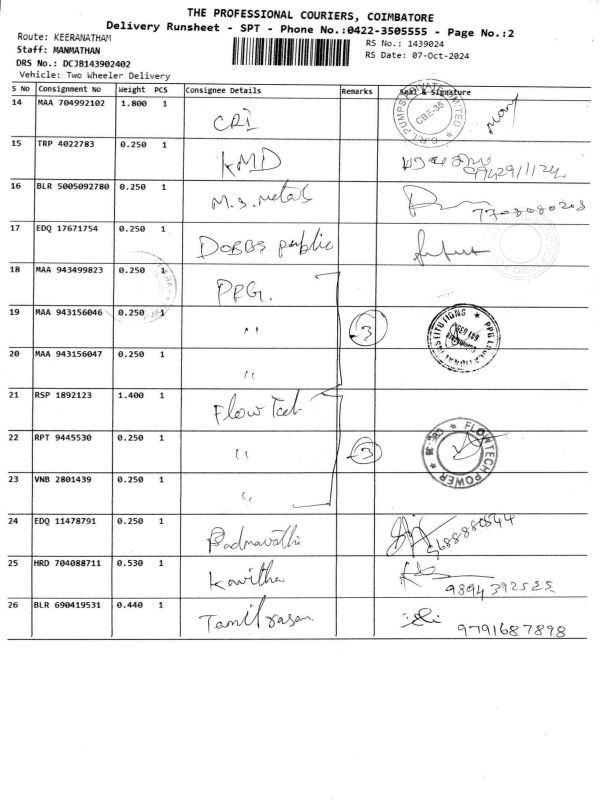 THE PROFESSIONAL COURIERS, COIMBATORE
Delivery Runsheet - SPT - Phone No.:0422-3505555 - Page No.:2
Route: KEERANATHAM
RS No.: 1439024
Staff: MANMATHAN
RS Date: 07-Oct-2024
DRS No.: DCJB143902402
Vehicle: Two Wheeler Delivery
S No Consignment No Weight PCS Consignee Details Remarks Seal & Signature
14 MAA 704992102 1.800 1 CRI
15 TRP 4022783 0.250 1 KMD
16 BLR 5005092780 0.250 1 M.S. Metals
17 EDQ 17671754 0.250 1 DOBBS public
18 MAA 943499823 0.250 1 PPG.
19 MAA 943156046 0.250 1 " 3
20 MAA 943156047 0.250 1 "
21 RSP 1892123 1.400 1 Flow Tech
22 RPT 9445530 0.250 1 " 3
FLOWTECH POWER ★ CBE-35 ★
23 VNB 2801439 0.250 1 "
24 EDQ 11478791 0.250 1 Padmavathi
25 HRD 704088711 0.530 1 Kavitha
26 BLR 690419531 0.440 1 Tamilrasan 9791687898